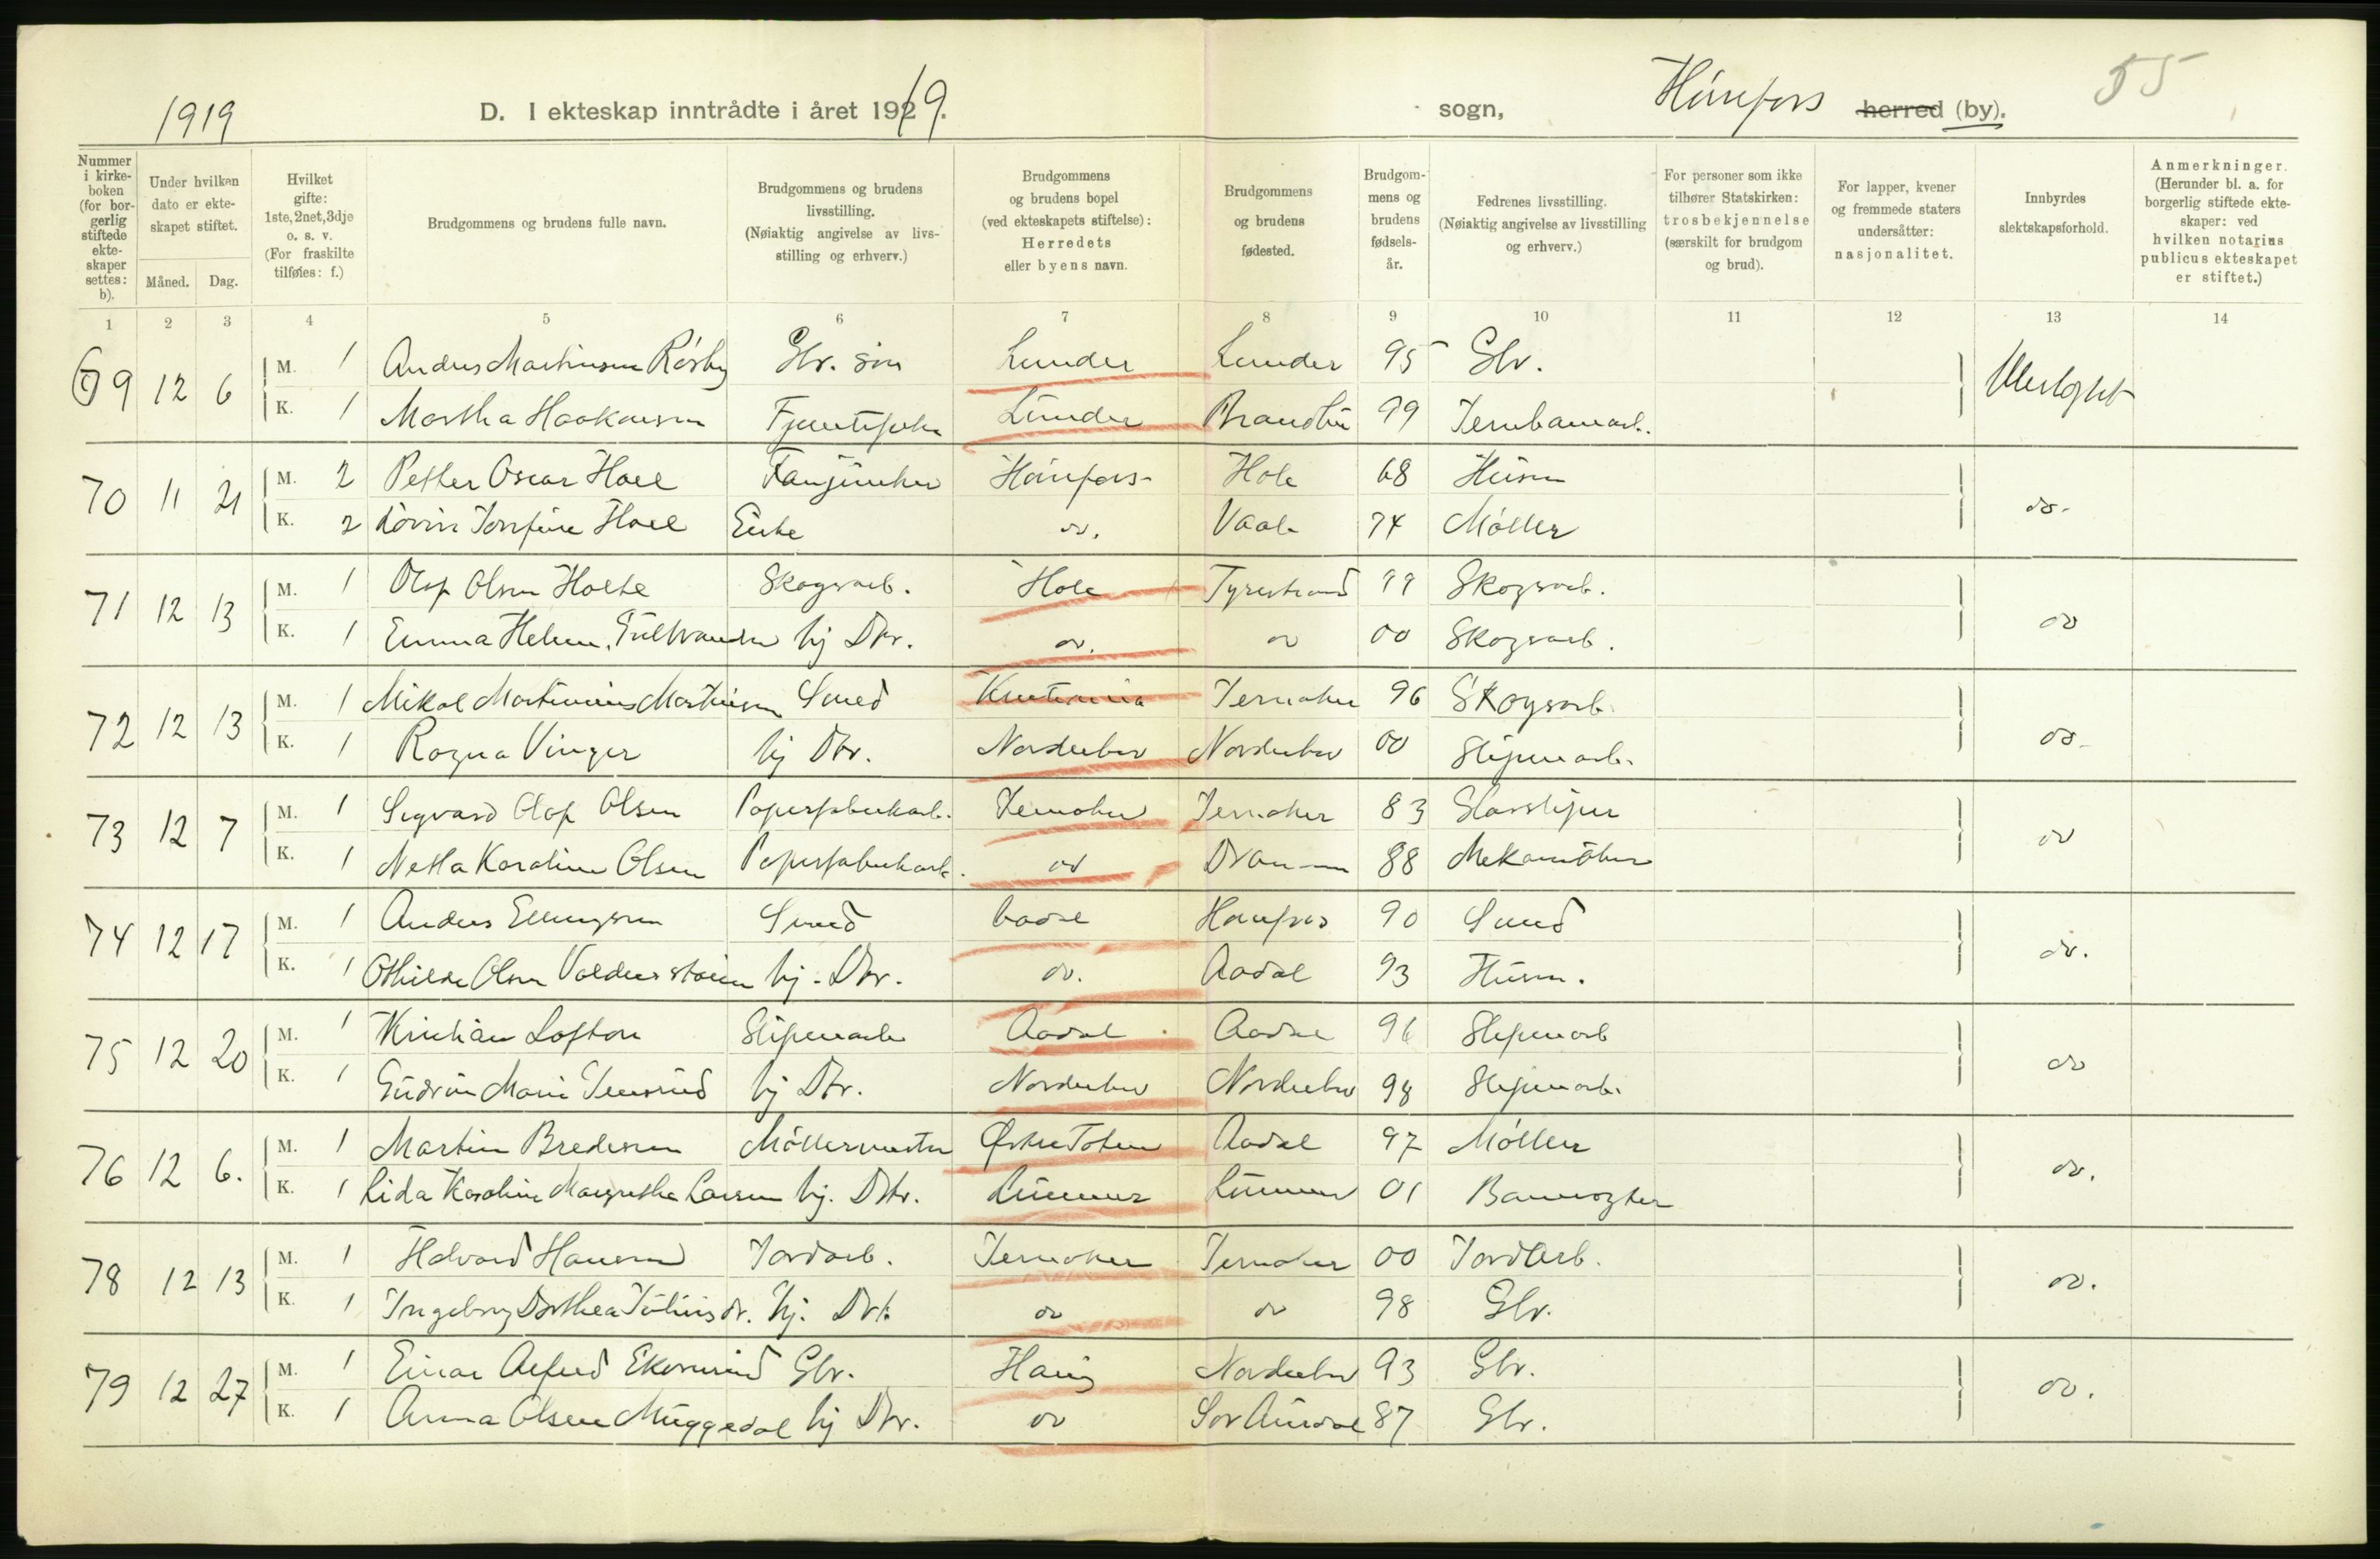 1919 D. I ekteskap inntrådte i året 1919. sogn, Hønefoss herred (by). 55
Nummer i kirkeboken (for borgerlig stiftede ekteskaper settes: b).
Under hvilken dato er ekteskapet stiftet.
Måned. Dag.
Hvilket gifte: 1ste, 2net, 3dje o. s. v. (For fraskilte tilføies: f.)
Brudgommens og brudens fulle navn.
Brudgommens og brudens livsstilling. (Nøiaktig angivelse av livsstilling og erhverv.)
Brudgommens og brudens bopel (ved ekteskapets stiftelse): Herredets eller byens navn.
Brudgommens og brudens fødested.
Brudgommens og brudens fødselsår.
Fedrenes livsstilling. (Nøiaktig angivelse av livsstilling og erhverv.)
For personer som ikke tilhører Statskirken: trosbekjennelse (særskilt for brudgom og brud).
For lapper, kvener og fremmede staters undersåtter: nasjonalitet.
Innbyrdes slektskapsforhold.
Anmerkninger. (Herunder bl. a. for borgerlig stiftede ekteskaper: ved hvilken notarius publicus ekteskapet er stiftet.)
1 2 3 4 5 6 7 8 9 10 11 12 13 14
69 12 6 M. 1 Anders Martinsen Rørby Gbr. søn Lunder Lunder 95 Gbr. Ubeslegtet
K. 1 Martha Haakensen Lunder Brandbu 99 Jernbanearb.
70 11 21 M. 2 Petter Oscar Hoel Fanjunker Hønefoss Hole 68 Husm do.
K. 2 Josefine Hoel Enke do. Vaale 74 Møller
71 12 13 M. 1 Olaf Olsen Holte Skogsarb. Hole Tyristrand 99 Skogsarb. do
K. 1 Emma Helen. Gulbrandsen hj Dtr. do. do 00 Skogsarb.
72 12 13 M. 1 Mikal Martinius Martinsen Smed Kristiania Jevnaker 96 Skogsarb. do.
K. 1 Ragna Vinger hj Dtr. Norderhov Norderhov 00 Sliperiarb.
73 12 7 M. 1 Sigvard Olaf Olsen Papirfabrikarb. Jevnaker Jevnaker 83 Glassliper do
K. 1 Netta Karoline Olsen Papirfabrikarb. do Drammen 88 Mekaniker
74 12 17 M. 1 Anders Ellingsen Smed Aadal Hønefos 90 Smed do.
K. 1 Othilde Olsen hj. Dtr. do. Aadal 93 Husm.
75 12 20 M. 1 Kristian Lofton Sliperiarb Aadal Aadal 96 Sliperiarb do
K. 1 Gudrun Marie hj Dtr. Norderhov Norderhov 98 Sliperiarb.
76 12 6. M. 1 Martin Bredesen Møllermester Østre Toten Aadal 97 Møller do.
K. 1 Lida Karoline Margrethe Larsen hj. Dtr. Lunner Lunner 01 Banevogter
78 12 13 M. 1 Halvard Hansen Jordarb. Jevnaker Jevnaker 00 Jordarb. do.
K. 1 Ingeborg Dorthea Juliusdr. hj. Dtr. do do 98 Gbr.
79 12 27 M. 1 Einar Alfred Ekornrud Gbr. Haug Norderhov 93 Gbr. do.
K. 1 Anna Olsen Muggedal hj Dtr. do Sør Aurdal 87 Gbr.